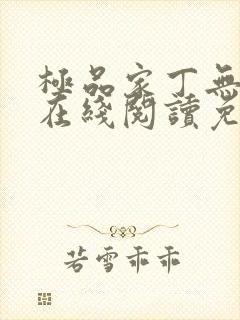 極品家丁無
在綫閱讀免
若雪乖乖